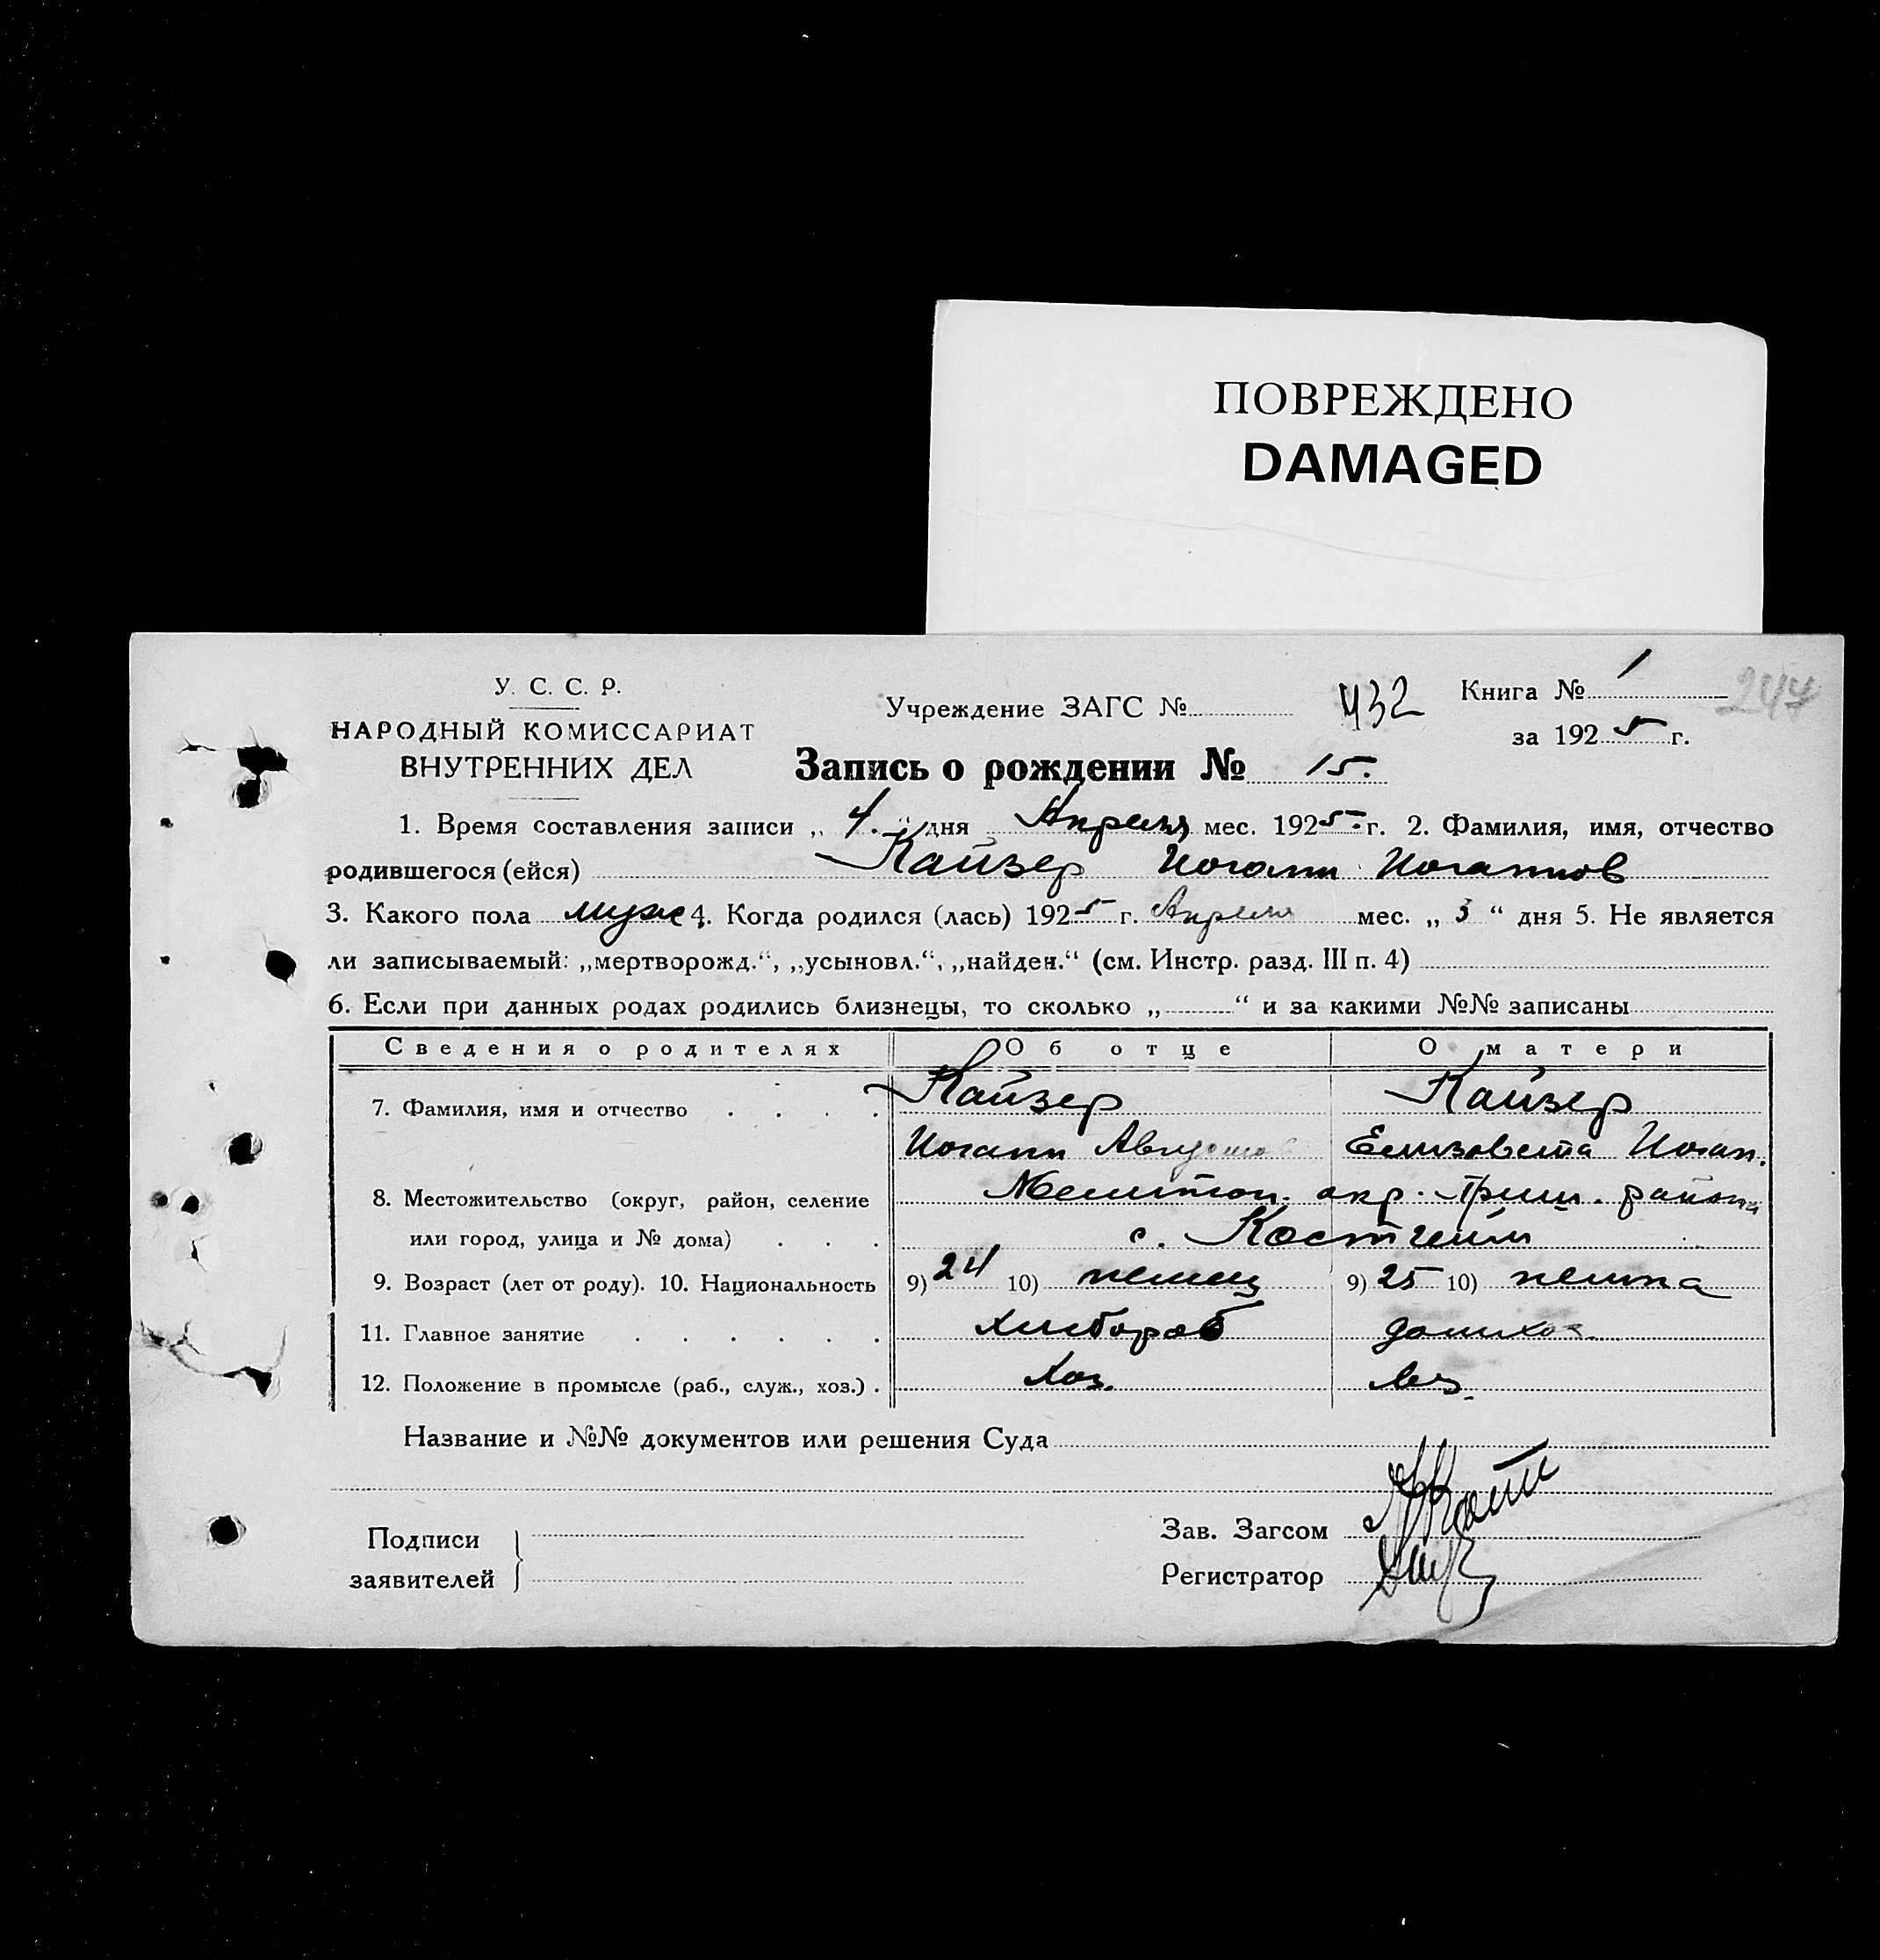 ПОВРЕЖДЕНО
DAMAGED
У. С. С. Р.
НАРОДНЫЙ КОМИССАРИАТ
ВНУТРЕННИХ ДЕЛ
Учреждение ЗАГС № 432
Книга № 1
247
за 1925 г.
Запись о рождении № 15.
1. Время составления записи „ 4. “ дня Апреля мес. 1925 г. 2. Фамилия, имя, отчество
родившегося (ейся) Кайзер Иоганн Иоганнов
3. Какого пола муже 4. Когда родился (лась) 1925 г. Апреля мес. „ 3 “ дня 5. Не является
ли записываемый: „мертворожд.“, „усыновл.“, „найден.“ (см. Инстр. разд. III п. 4)
6. Если при данных родах родились близнецы, то сколько „ “ и за какими №№ записаны
Сведения о родителях Об отце О матери
7. Фамилия, имя и отчество Кайзер Кайзер
Иоганн Августов Елизовета Иоган.
8. Местожительство (округ, район, селение Мелитоп. окр. Приш. района
или город, улица и № дома) с. Костгейм
9. Возраст (лет от роду). 10. Национальность 9) 24 10) немец 9) 25 10) немка
11. Главное занятие хлебороб домхоз.
12. Положение в промысле (раб., служ., хоз.) . Хоз.
Название и №№ документов или решения Суда
Подписи
заявителей
Зав. Загсом
Регистратор